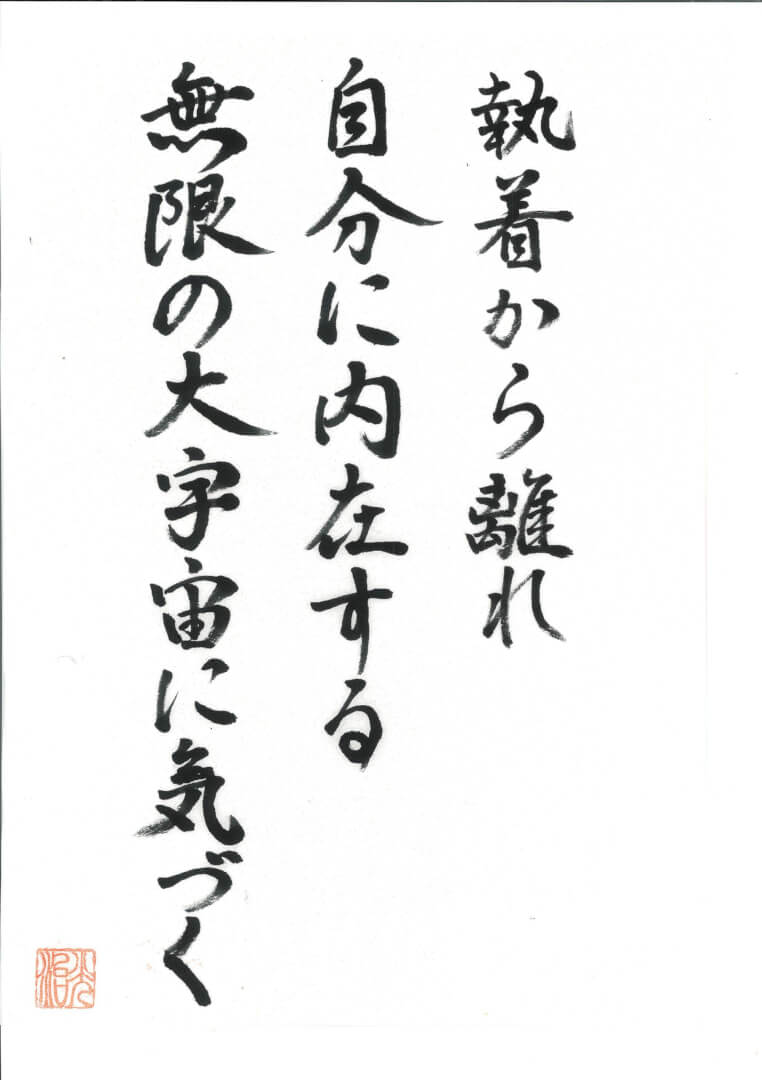 執着から離れ
自分に内在する
無限の大宇宙に気づく